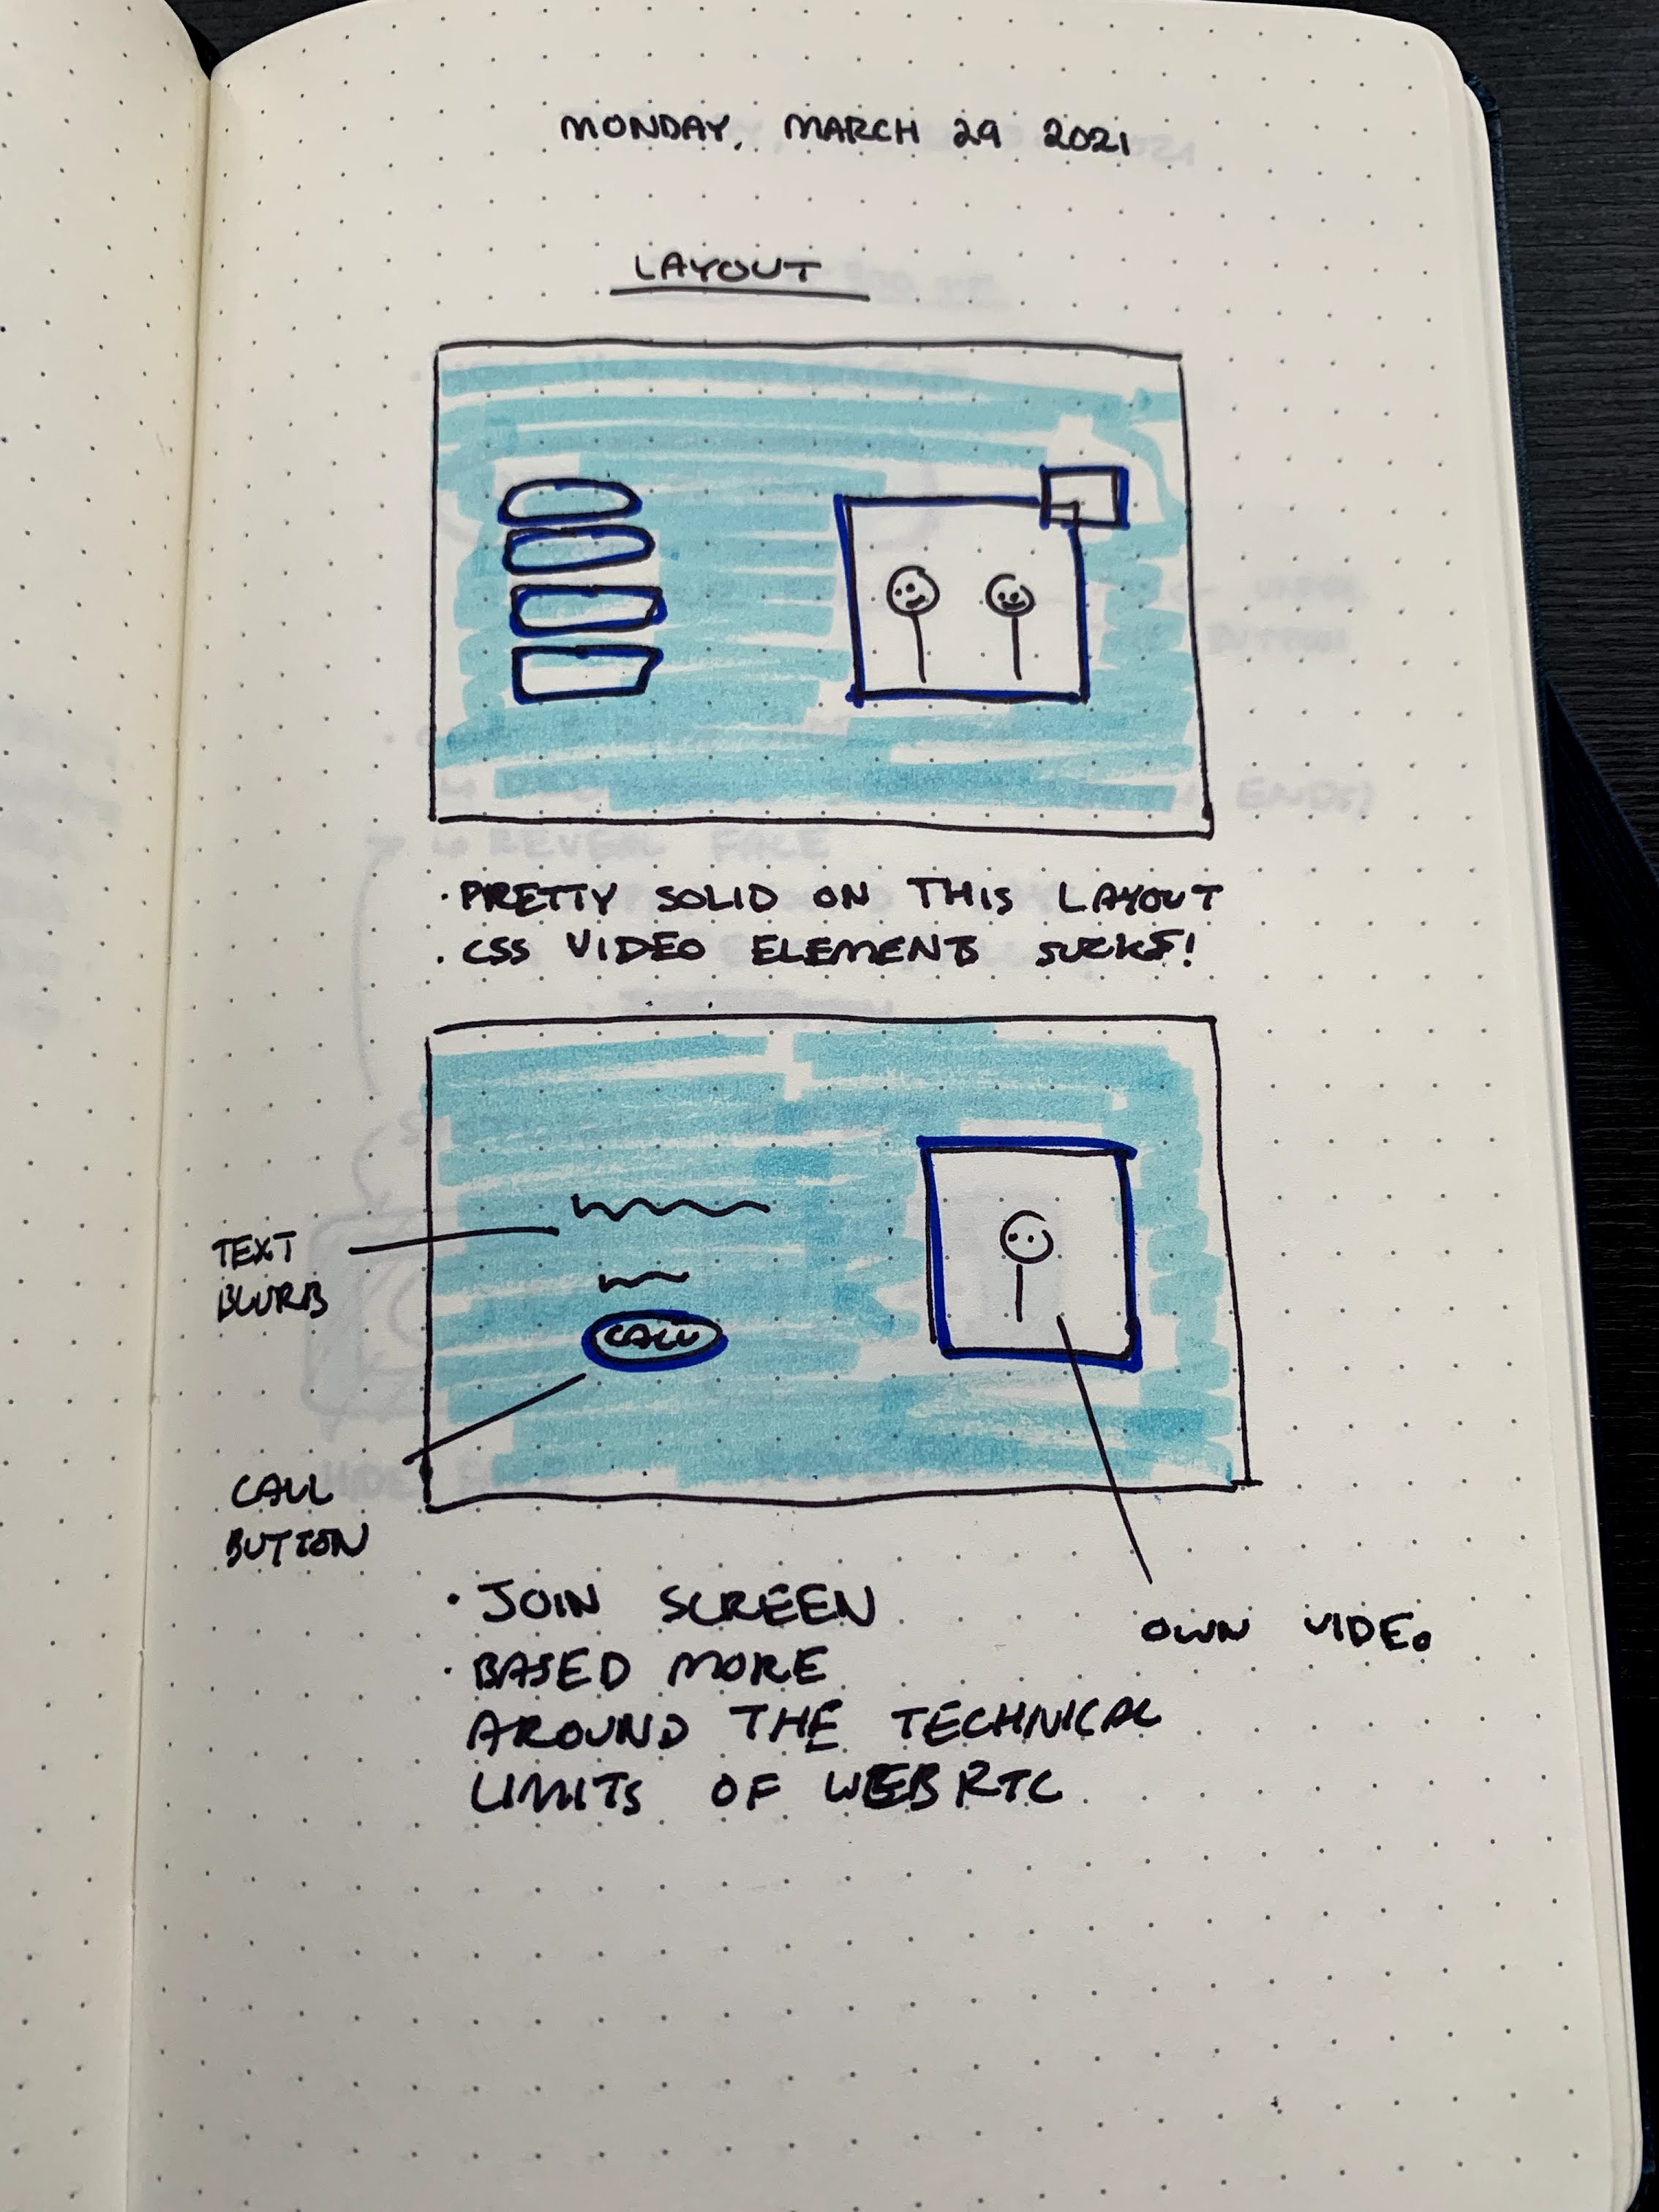 MONDAY, MARCH 29 2021
LAYOUT
· PRETTY SOLID ON THIS LAYOUT
· CSS VIDEO ELEMENTS SUCKS!
TEXT
BLURB
CALL
CALL
BUTTON
OWN VIDEO
· JOIN SCREEN
· BASED MORE
AROUND THE TECHNICAL
LIMITS OF WEBRTC
REVEAL FACE
ENDS)
BUTTON
HIDE